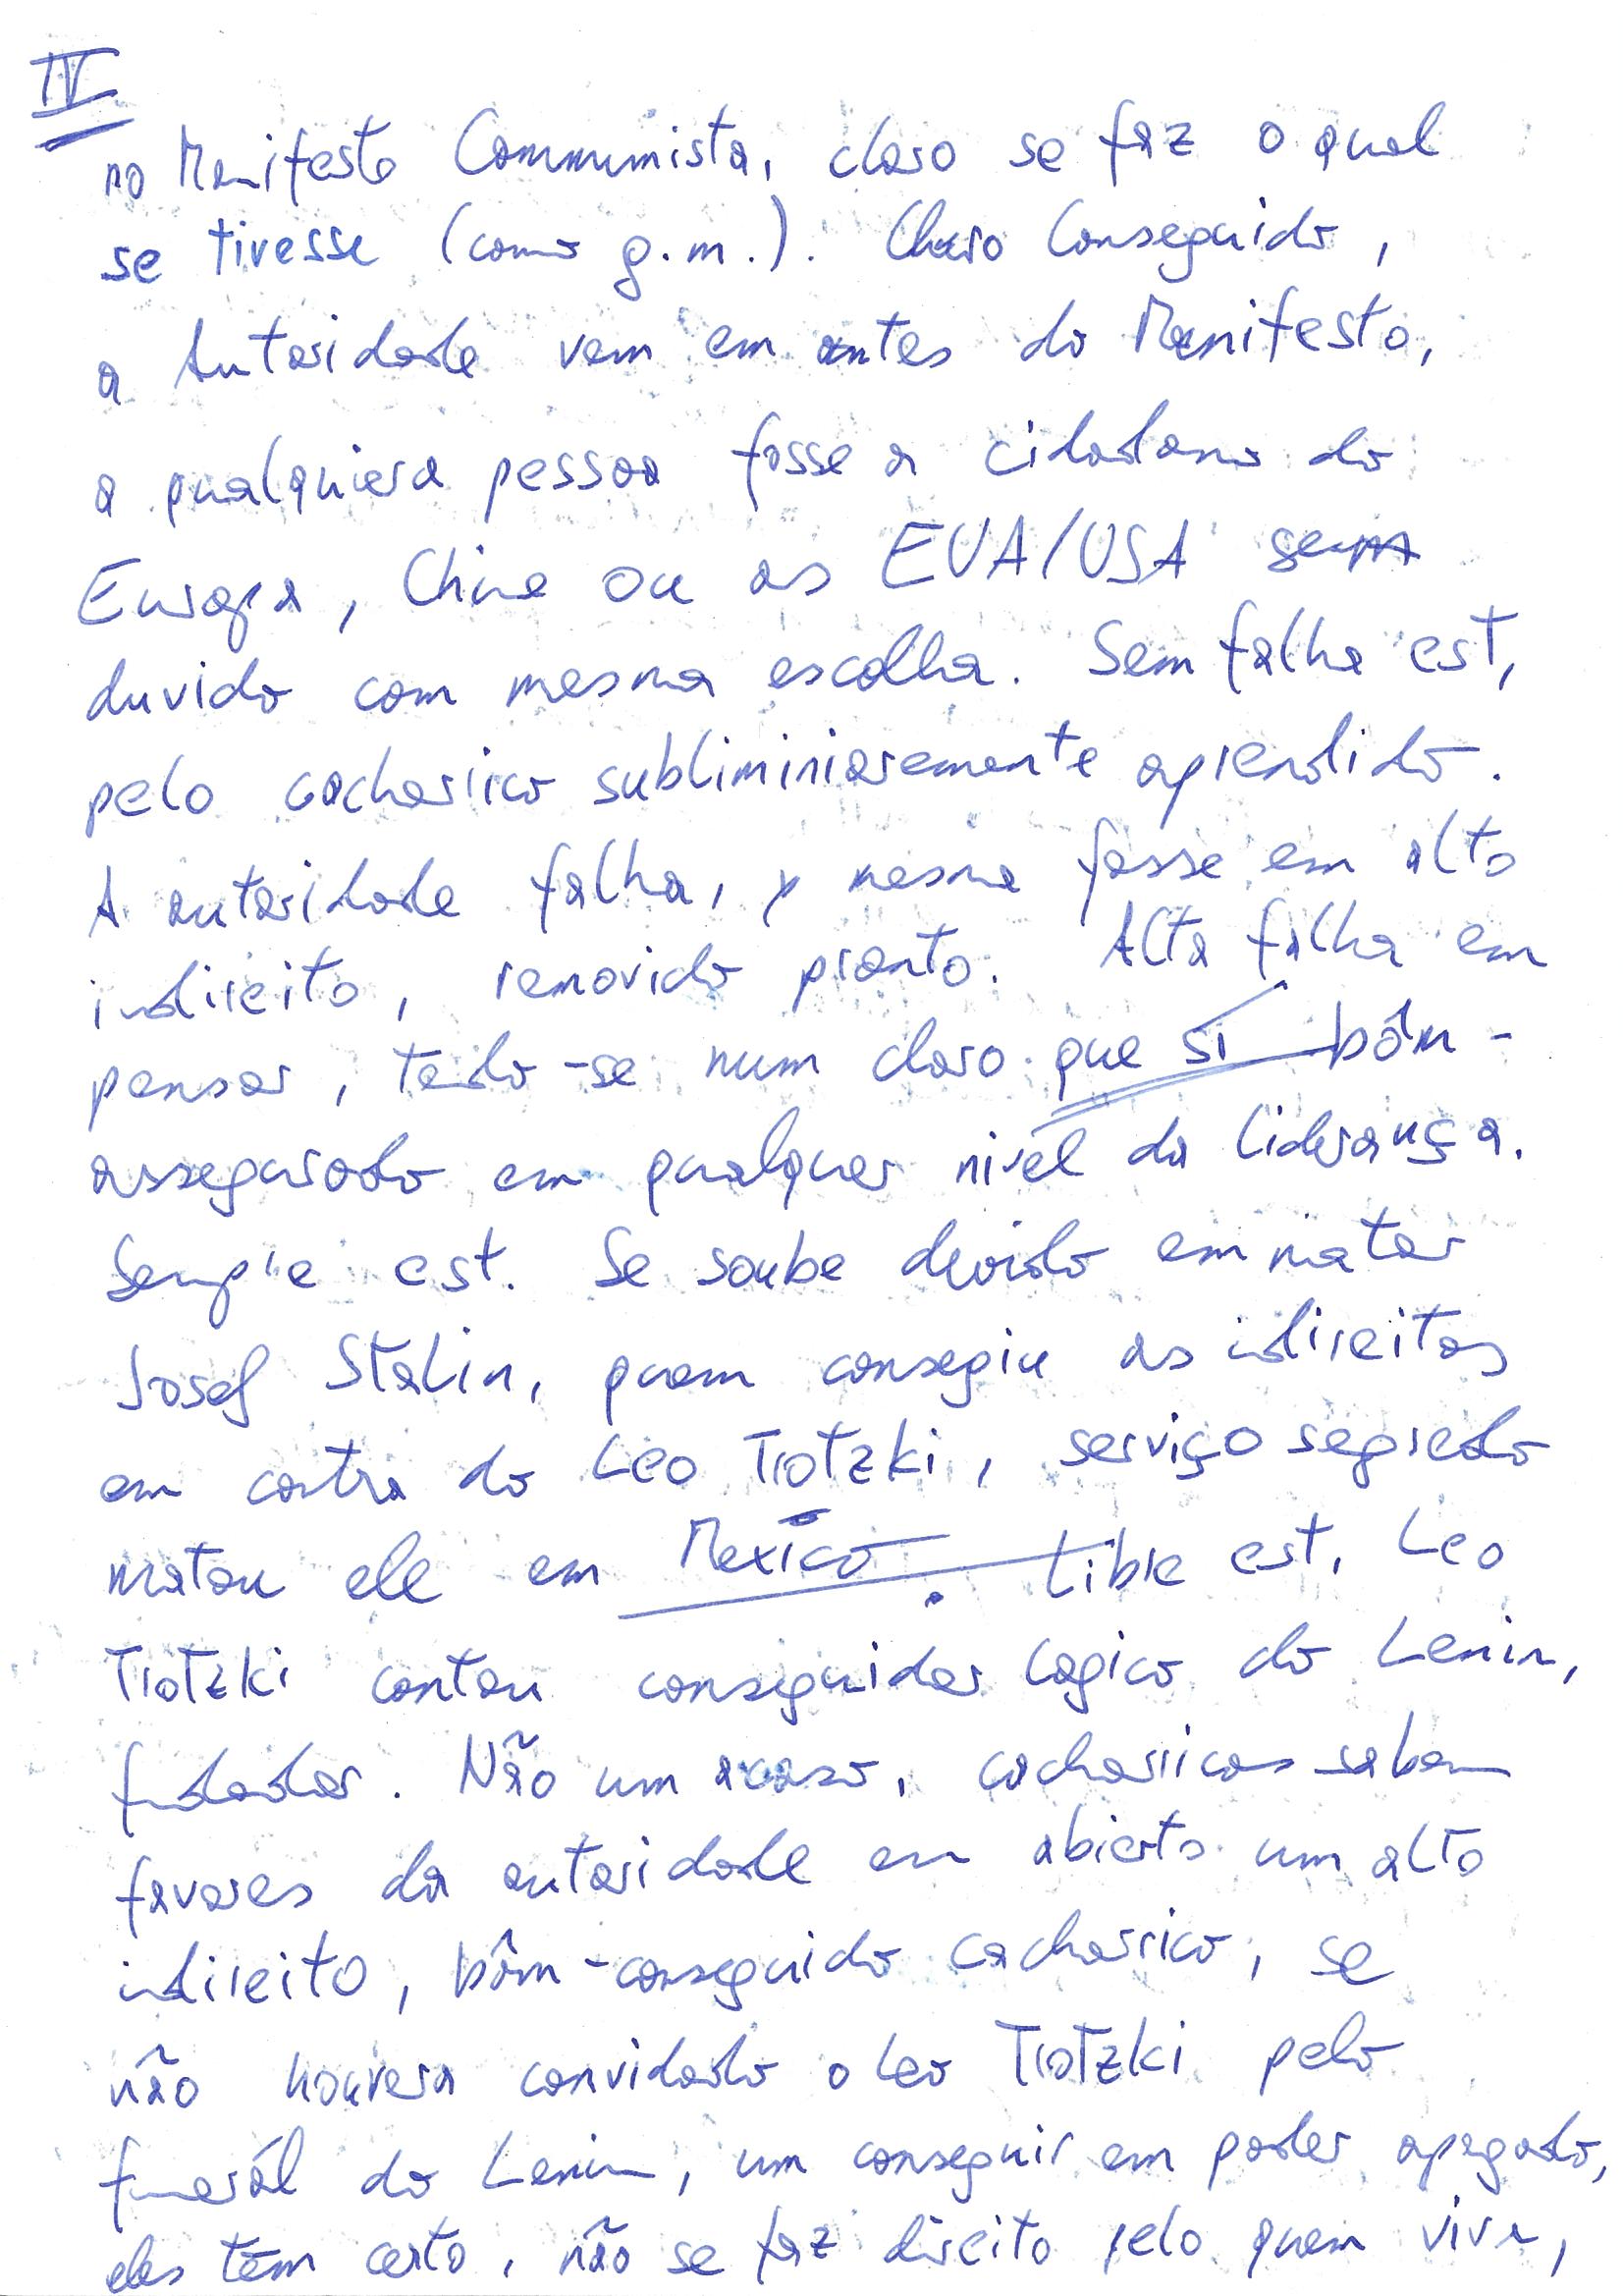 IV
no Manifesto Communista, claro se faz o qual
se tivesse (como g.m.). Claro Conseguido,
a Autoridade vem em antes do Manifesto,
a qualquiera pessoa fosse a cidadano do
Europa, China ou as EUA/USA sem
duvido com mesma escolha. Sem falha est,
pelo cacharrico subliminiaremente aprendido.
A autoridade falha, mesma fosse em alto
indireito, removido pronto. Alta falha em
pensar, tedo-se num claro que sí bôm-
assegurado em qualquer nivel da liderança.
Sempre est. Se soube devido em matar
Josef Stalin, quem consegiu as indireitas
em contra do Leo Trotzki, serviço segredo
matou ele em Mexico. Libre est, Leo
Trotzki contou conseguidor logico do Lenin,
fundador. Não um acaso, cacharricos sabem
favores da autoridade em abierto um alto
indireito, bôm-conseguido cacharrico, se
não houvera convidado o Leo Trotzki pelo
funerál do Lenin, um conseguir em poder apagado,
eles têm certo, não se faz direito pelo quem viva,